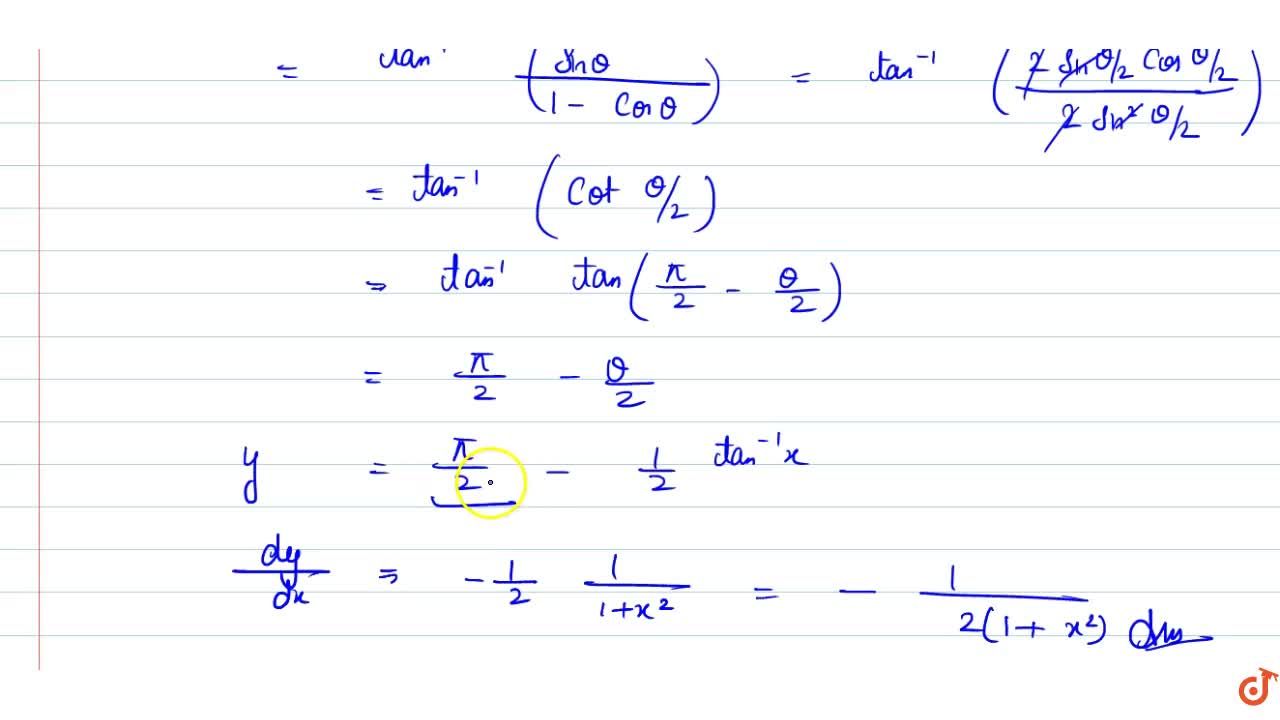 = tan⁻¹ (sinθ / (1 - Cosθ)) = tan⁻¹ (2 sin θ/2 Cos θ/2 / 2 sin² θ/2)
= tan⁻¹ (Cot θ/2)
= tan⁻¹ tan(π/2 - θ/2)
= π/2 - θ/2
y = π/2 - 1/2 tan⁻¹x
dy/dx = -1/2 1/(1+x²) = - 1/(2(1+x²)) Ans